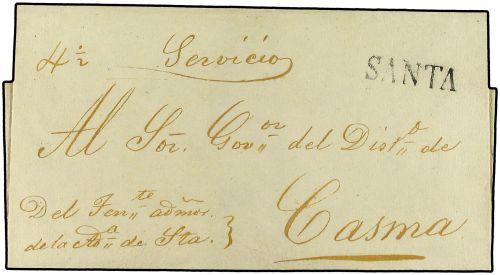 4½ Servicio
SANTA
Al Sor. Gov.or del Dist.o de
Casma
Del Ten.te admor.
de la Ad.a de Sta.